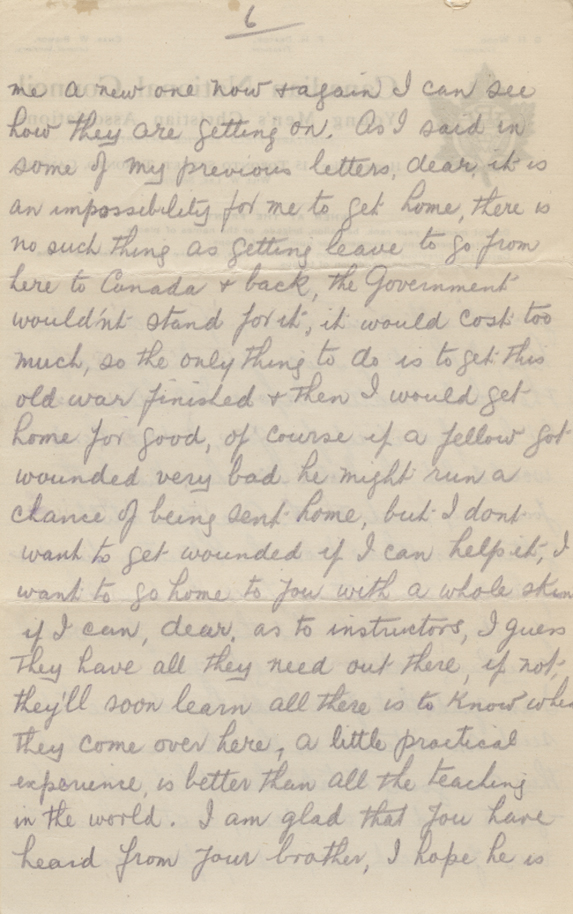 6
me a new one now & again I can see
how they are getting on. As I said in
some of my previous letters, dear, it is
an impossibility for me to get home, there is
no such thing as getting leave to go from
here to Canada & back, the Government
would'nt stand for it, it would cost too
much, so the only thing to do is to get this
old war finished & then I would get
home for good, of course if a fellow got
wounded very bad he might run a
chance of being sent home, but I dont
want to get wounded if I can help it, I
want to go home to you with a whole skin
if I can, dear. as to instructors, I guess
they have all they need out there, if not,
they'll soon learn all there is to know when
they come over here, a little practical
experience, is better than all the teaching
in the world. I am glad that you have
heard from your brother, I hope he is